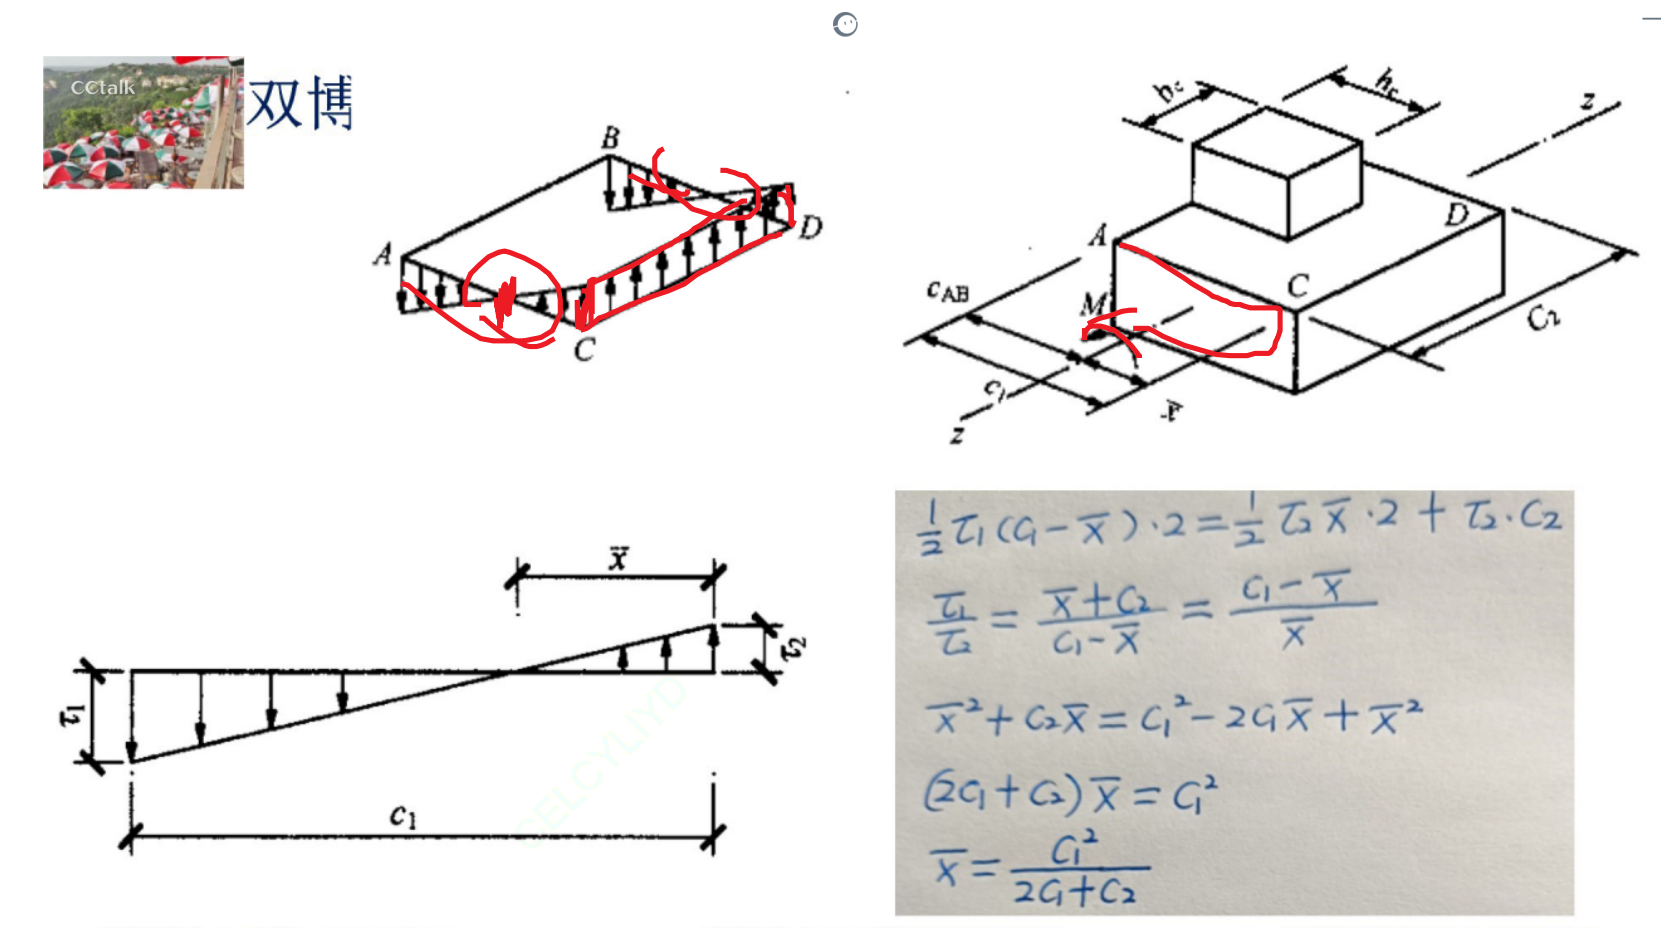 CCtalk
双博
B
A
D
C
b_c
h_c
z
A
D
C
M
c_AB
C₂
c₁
z
x̄
τ₁
τ₂
c₁
½ τ₁ (C₁ − x̄) · 2 = ½ τ₂ x̄ · 2 + τ₂ · C₂
τ₁/τ₂ = (x̄ + C₂)/(C₁ − x̄) = (C₁ − x̄)/x̄
x̄² + C₂x̄ = C₁² − 2C₁x̄ + x̄²
(2C₁ + C₂) x̄ = C₁²
x̄ = C₁²/(2C₁ + C₂)